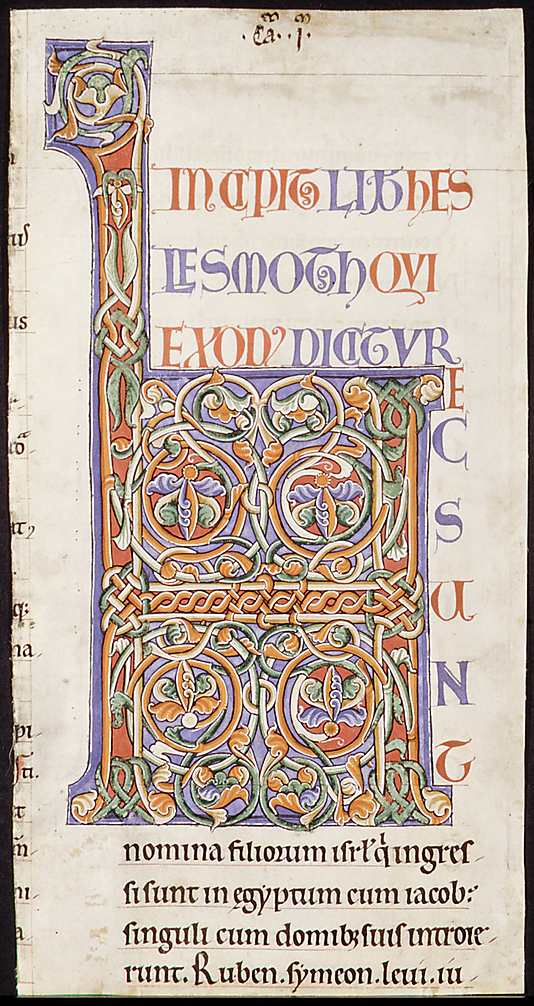 .Ca. .I.
INCIPIT LIB HES
LESMOTH QVI
EXODꝰ DICITVR
H
E
C
S
U
N
T
nomina filiorum isrł q̇ ingreſ
si sunt in egyptum cum iacob:
singuli cum domibꝫ suis introie
runt. Ruben. symeon. leui. iu